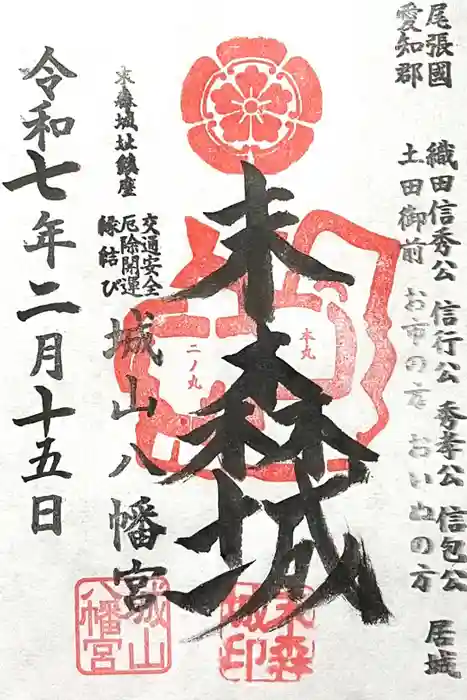 尾張國
愛知郡
織田信秀公 信行公 秀孝公 信包公 居城
土田御前 お市の方 おいぬの方
末森城
本丸
二ノ丸
末森城址鎮座
交通安全
厄除開運
縁結び
城山八幡宮
令和七年二月十五日
末森城印
城山八幡宮